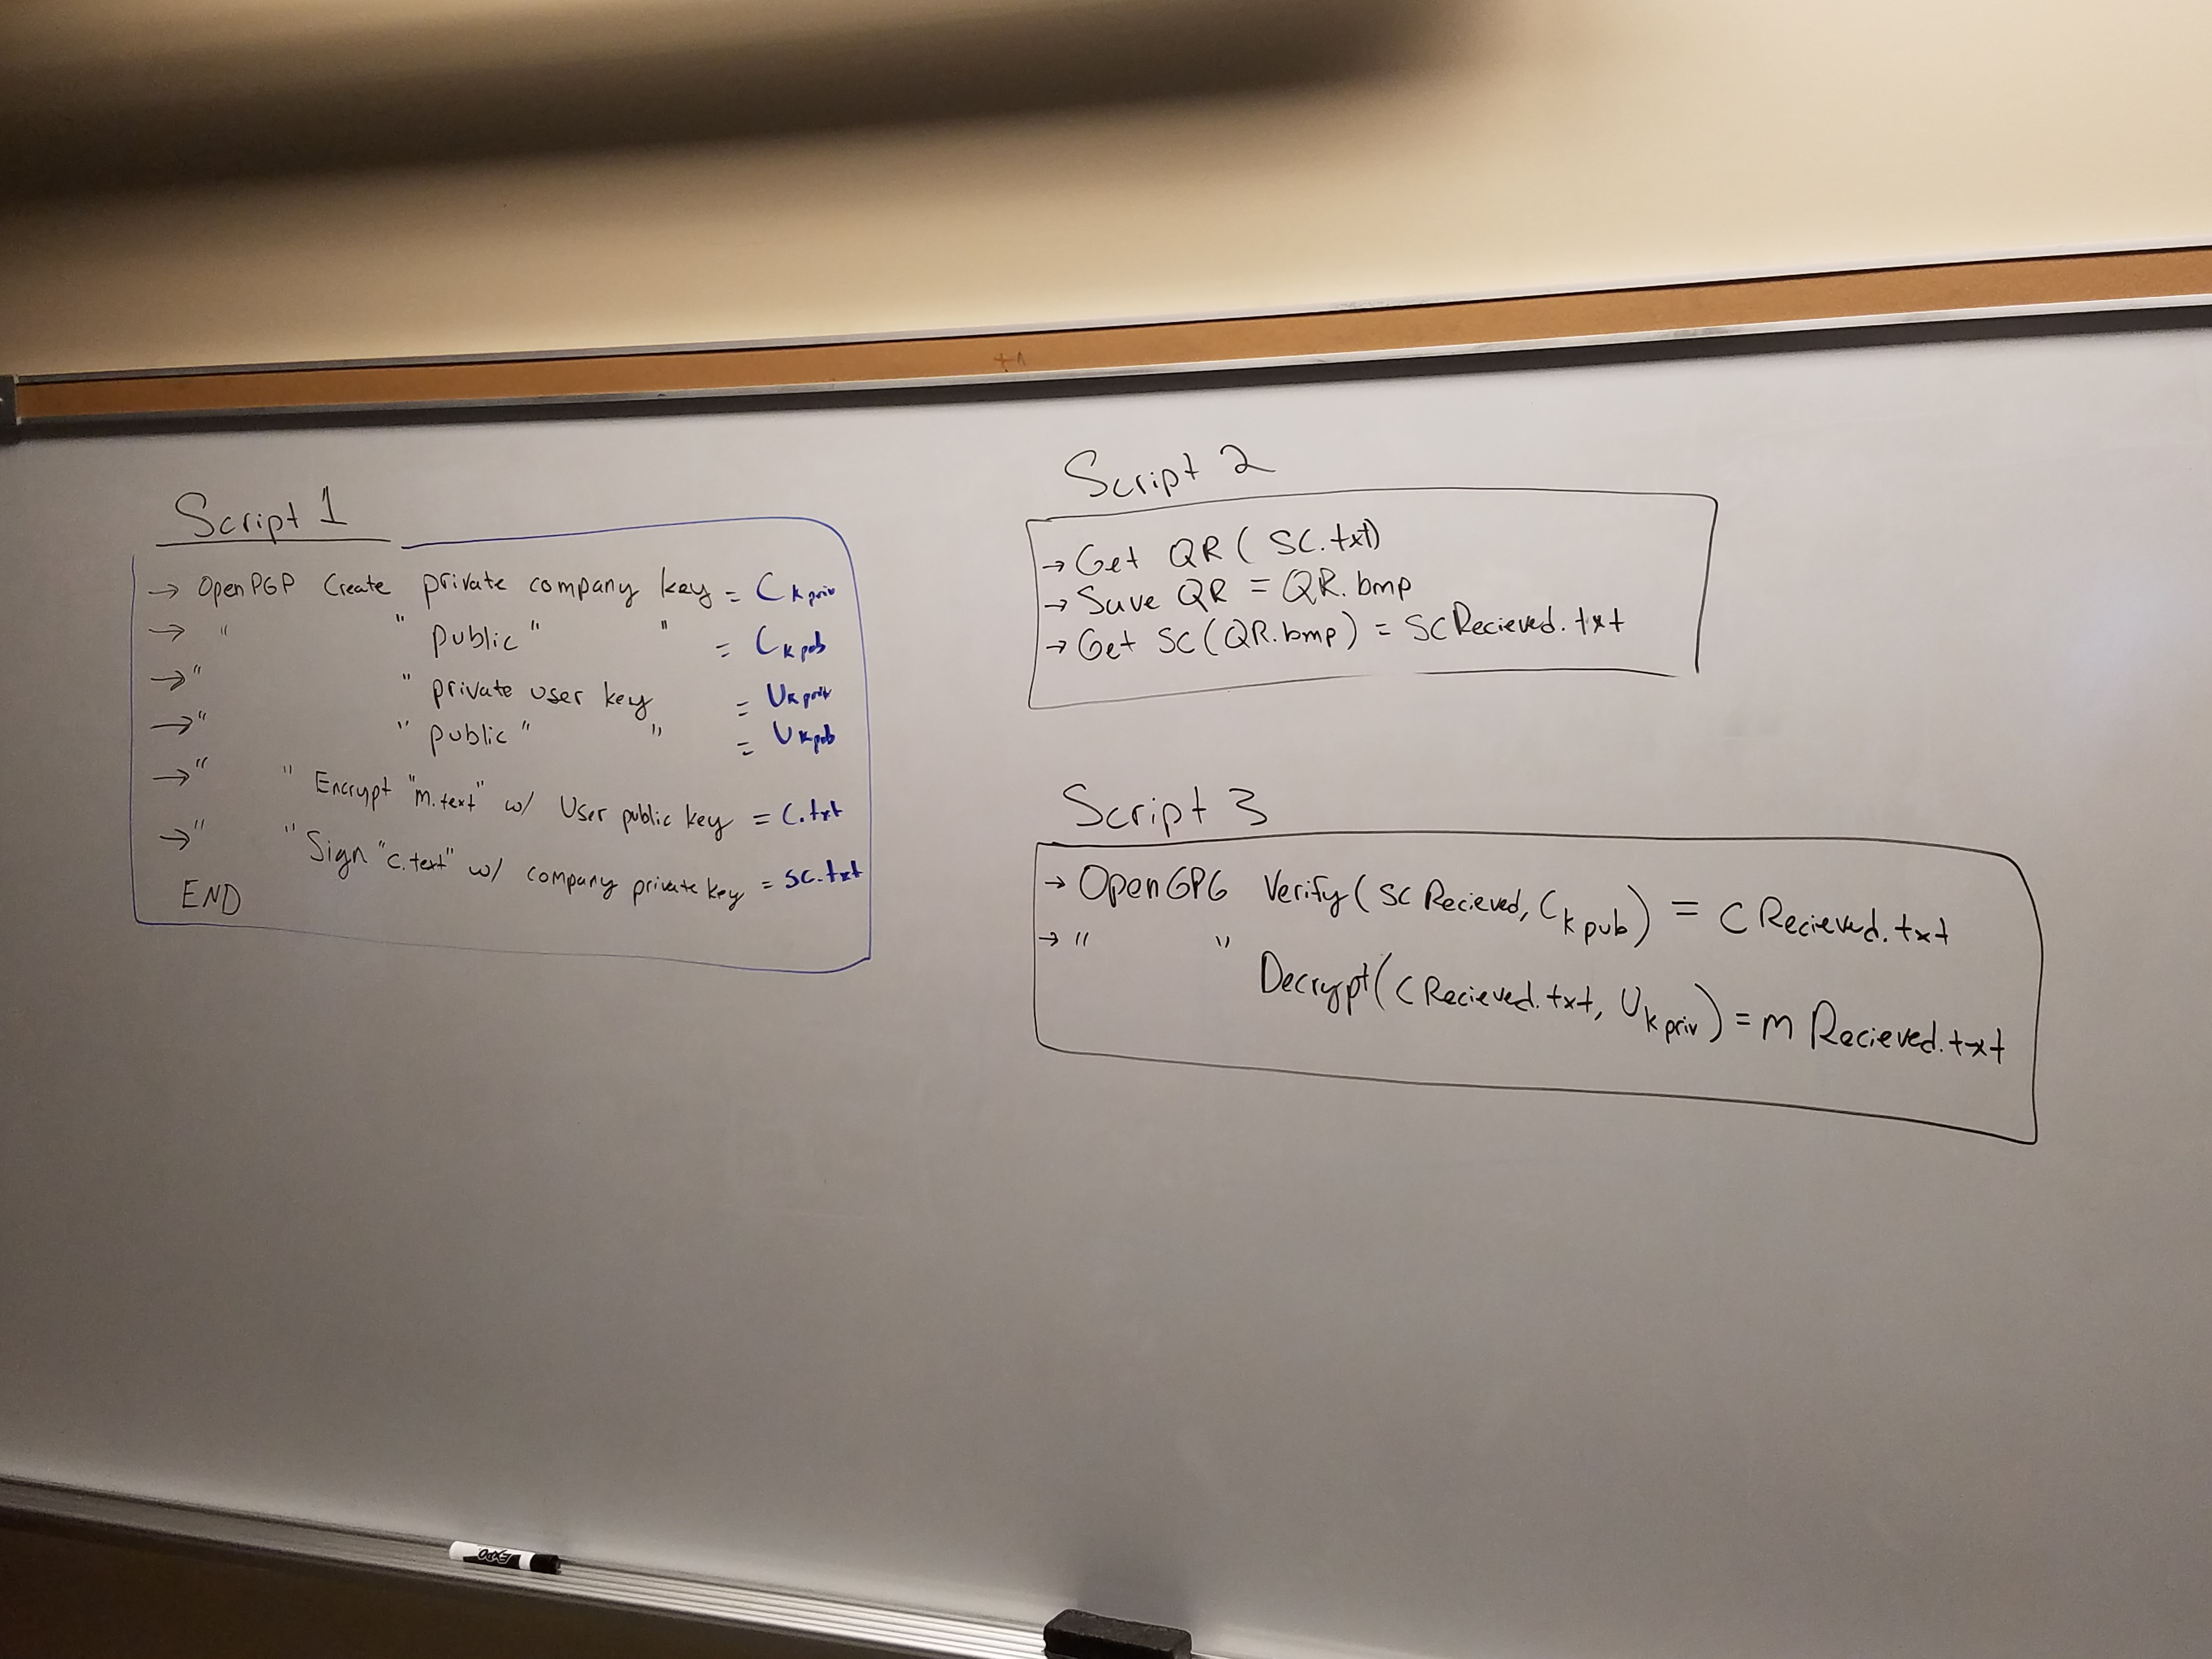 Script 1
→ OpenPGP Create private company key = Ckpriv
→ " " public " " = Ckpub
→ " " private user key = Ukpriv
→ " " public " " = Ukpub
→ " " Encrypt "m.text" w/ User public key = C.txt
→ " " Sign "c.text" w/ company private key = SC.txt
END
Script 2
→ Get QR ( SC.txt)
→ Save QR = QR.bmp
→ Get SC (QR.bmp) = SC Recieved.txt
Script 3
→ OpenGPG Verify( SC Recieved, Ck pub ) = C Recieved.txt
→ " " Decrypt( C Recieved.txt, Uk priv ) = m Recieved.txt
EXPO